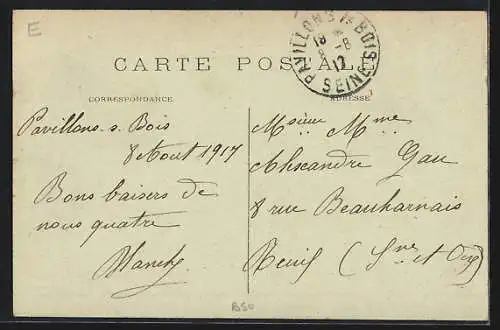 E
PAVILLONS s BOIS
18 *
8 -8
17
SEINE
CARTE POSTALE
CORRESPONDANCE
ADRESSE
Pavillons-s-Bois
8 Aout 1917
Bons baisers de
nous quatre
Blanche
Msieur Mme
Alexandre Gau
8 rue Beauharnais
Reuil (Sne et Oise)
BSO